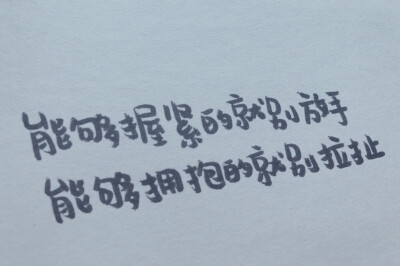 能够握紧的就别放手
能够拥抱的就别拉扯